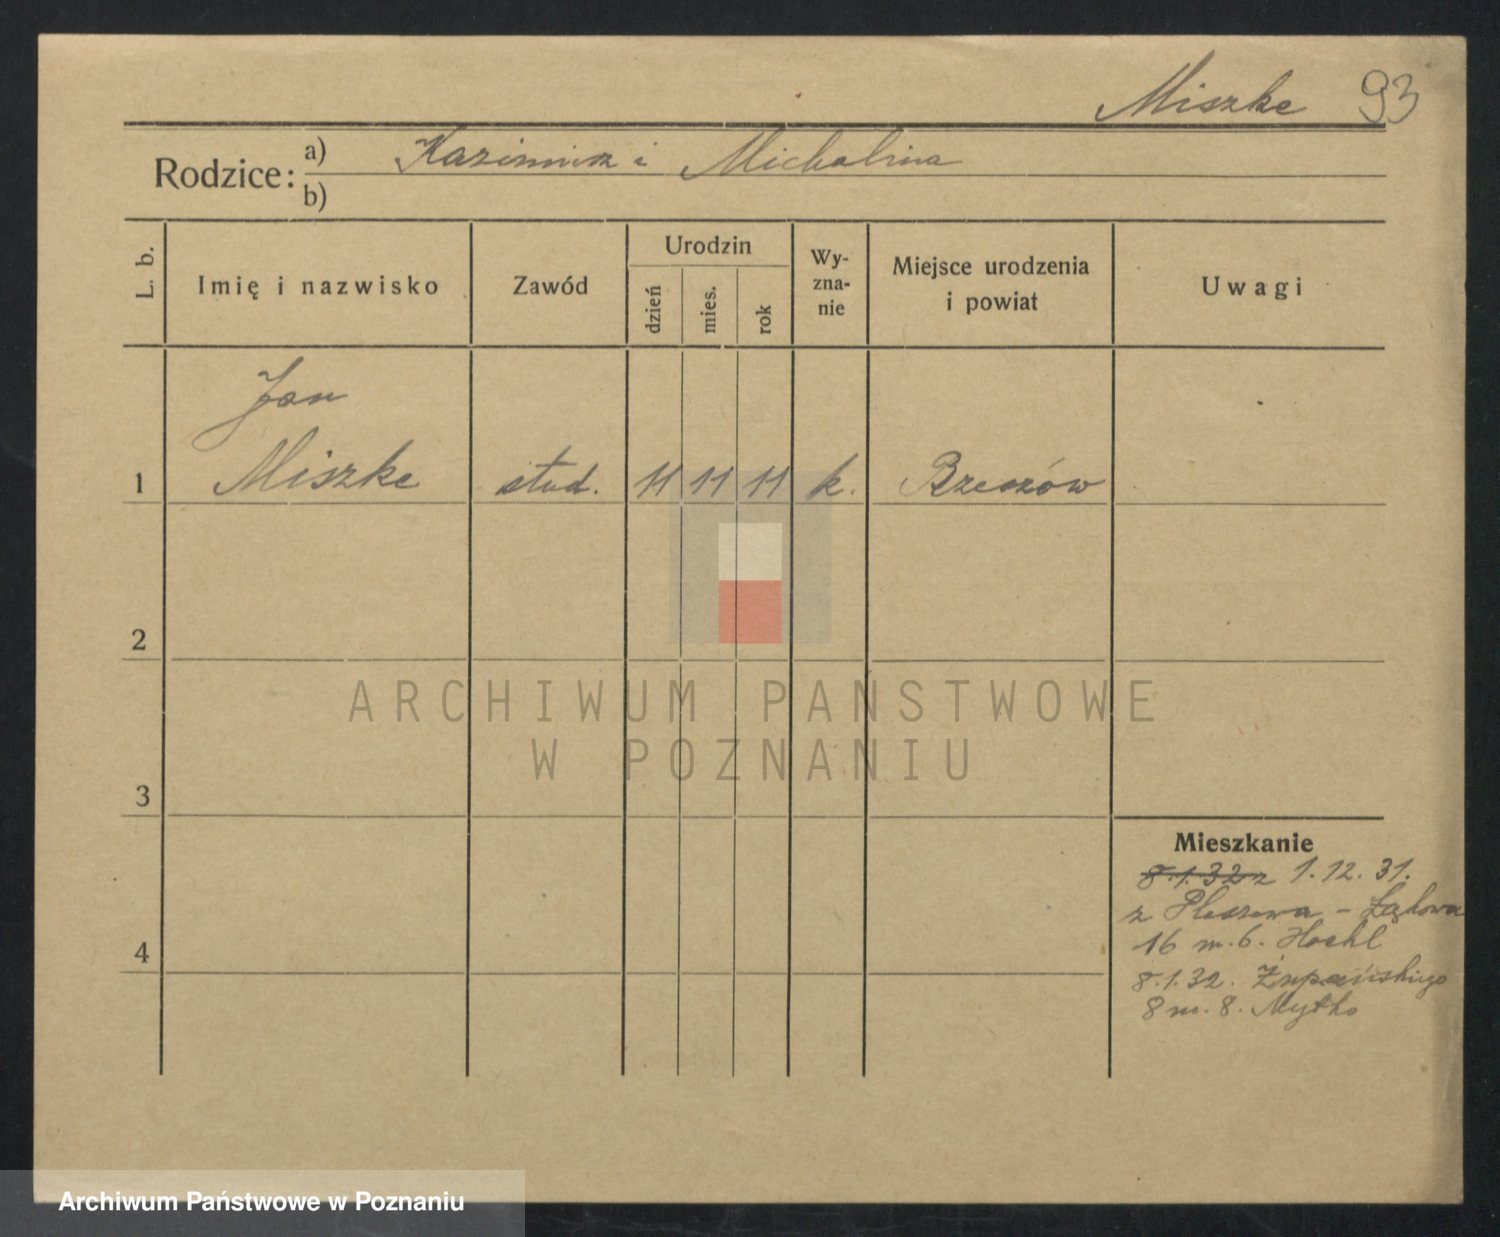 Miszke 93
Rodzice: a) Kazimierz i Michalina
b)
L. b.
Imię i nazwisko
Zawód
Urodzin
dzień
mies.
rok
Wy-
zna-
nie
Miejsce urodzenia
i powiat
Uwagi
Jan
1 Miszke stud. 11 11 11 k. Brzezów
2
ARCHIWUM PAŃSTWOWE
W POZNANIU
3
Mieszkanie
8.1.32 z 1.12.31.
z Pleszewa - Łąkowa
16 m. 6. Hoehl
4
8.1.32. Żupańskiego
8 m. 8. Mytko
Archiwum Państwowe w Poznaniu